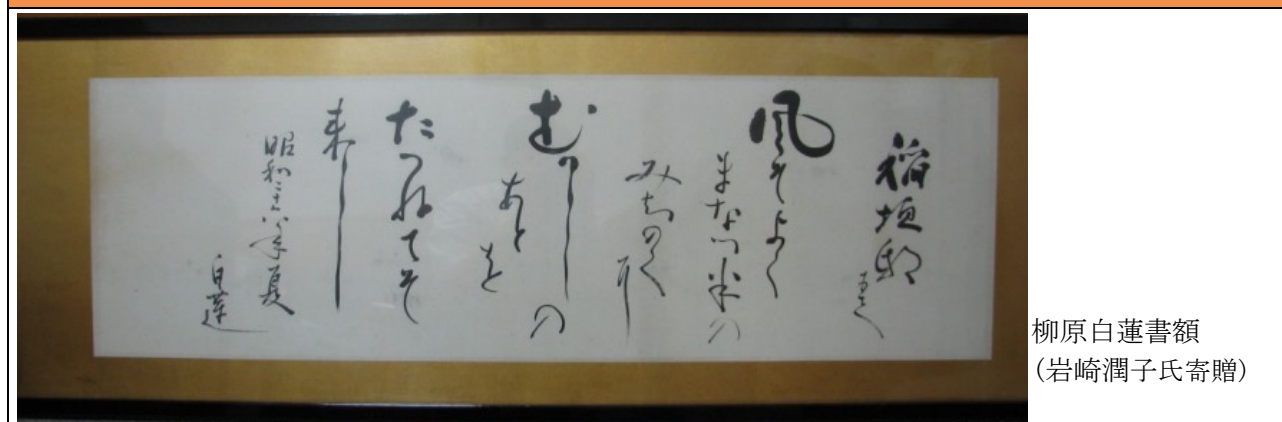 稲垣邸
にて
風そよく
まなつ半の
みちのくに
むかしの
あとを
たつねてそ
来し
昭和二十八年夏
白蓮
柳原白蓮書額
(岩崎潤子氏寄贈)